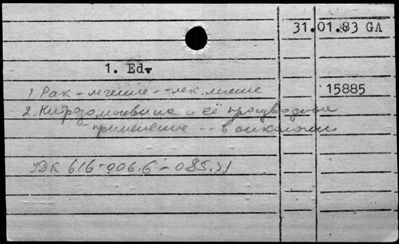 31.01.83 GA
1. Edv
1. Рак - лечение - лек. лечение 15885
2. и её производные
применение - в онкологии
УДК 616-006.6-085.31